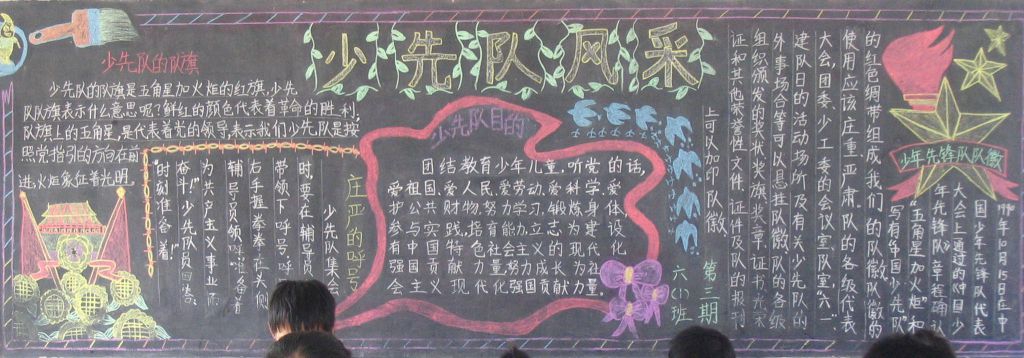 少先队风采
少先队的队旗
少先队的队旗是五角星加火炬的红旗,少先
队队旗表示什么意思呢?鲜红的颜色代表着革命的胜利,
队旗上的五角星,是代表着党的领导,表示我们少先队是按
照党指引的方向在前
进,火炬象征着光明。
庄严的呼号
少先队集会
时,要在辅导员
带领下呼号,呼
右手握拳
辅导员领:“准备着
为共产主义事业而
奋斗!”少先队员回答:
“时刻准备着!”
少先队目的
团结教育少年儿童,听党的话,
爱祖国、爱人民、爱劳动、爱科学、爱
护公共财物,努力学习,锻炼身体,
参与实践,培育能力,立志为建设
有中国特色社会主义现代化
强国贡献力量,努力成长为社
会主义现代化强国贡献力量。
第三期
六(1)班
少年先锋队队徽
年10月15日在中
国少年先锋队代表
大会上通过的《中国少
年先锋队》章程确认
“五角星加火炬”和
写有“中国少先队”
的红色绸带组成我们的队徽队徽的
使用应该庄重、严肃。队的各级代表
大会,团委、少工委的会议室、队室、六一、
建队日的活动场所及有关少先队的
外事场合等可以悬挂队徽;队的各级
组织颁发的奖状、奖旗、奖章、证书
证和其他荣誉性文件、证件及队的报刊
上可以加印队徽。